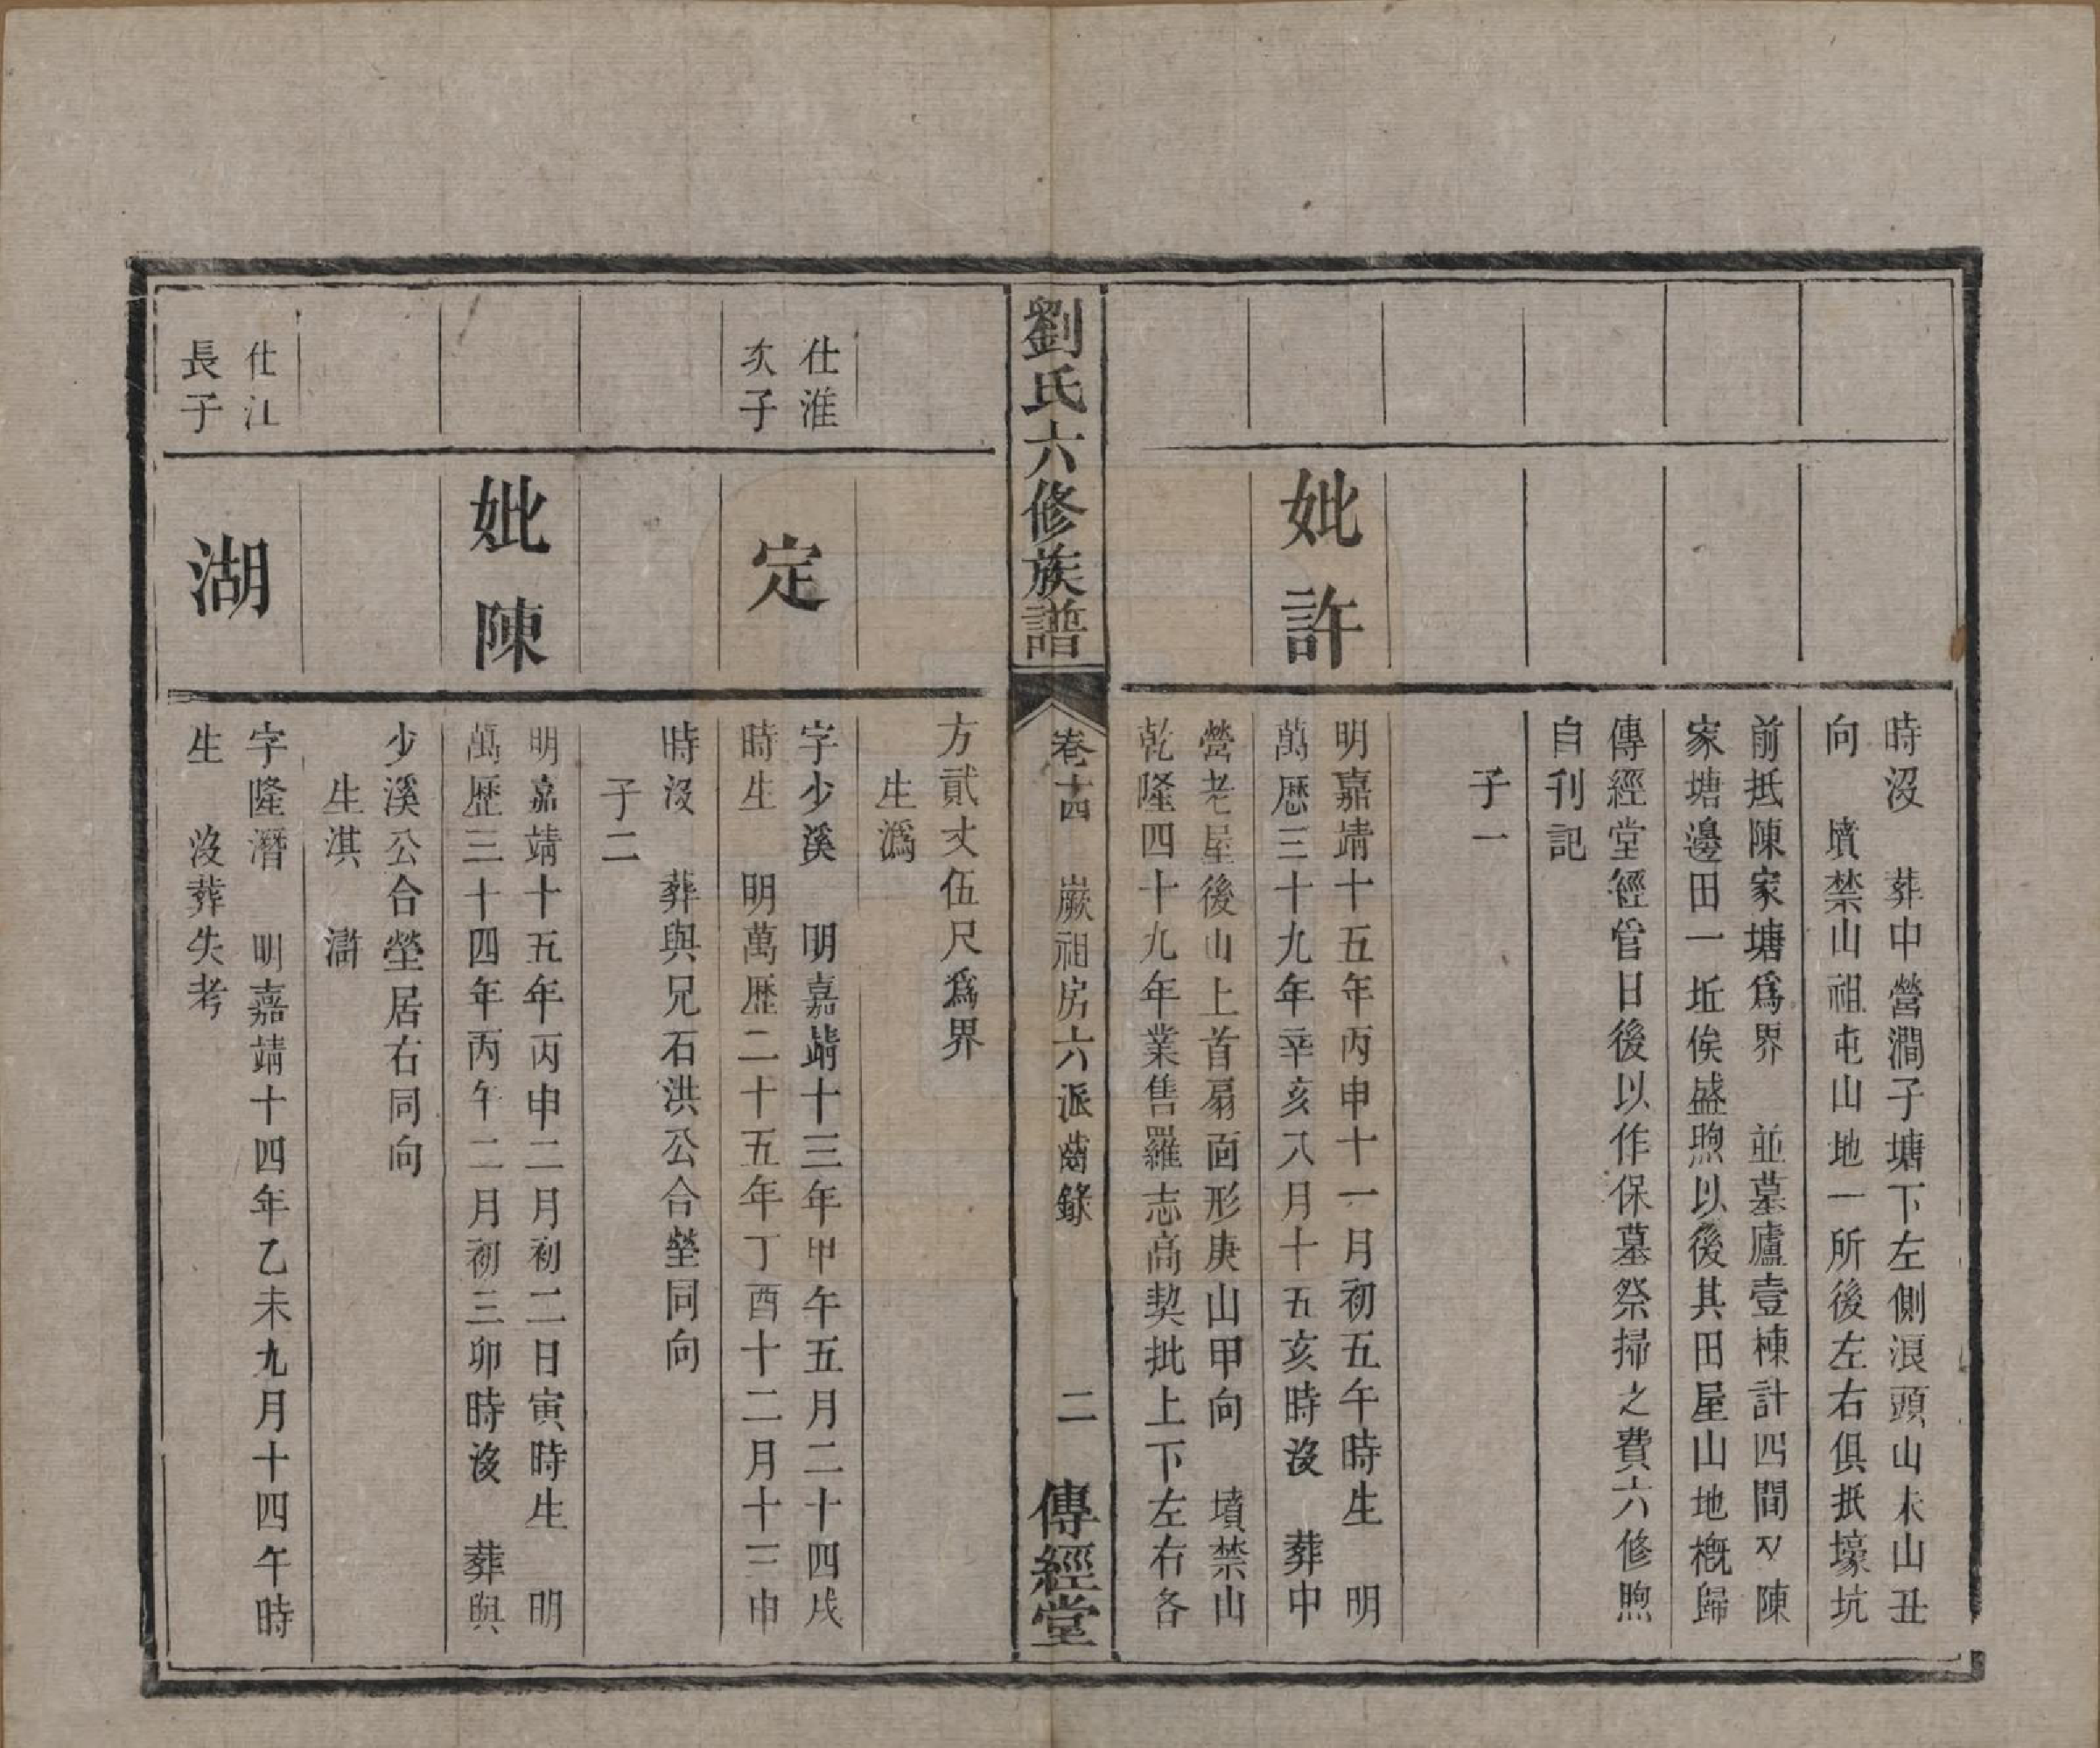 時沒　葬中營澗子塘下左側浪頭山未山丑
向　墳禁山祖屯山地一所後左右俱抵壕坑
前抵陳家塘爲界　並墓廬壹棟計四間又陳
家塘邊田一坵俟盛煦以後其田屋山地概歸
傳經堂經管日後以作保墓祭掃之費六修煦
自刊記
子一
妣許
明嘉靖十五年丙申十一月初五午時生　明
萬歷三十九年辛亥八月十五亥時沒　葬中
營老屋後山上首扇面形庚山甲向　墳禁山
乾隆四十九年業售羅志高契批上下左右各
劉氏六修族譜
卷十四　嚴祖房六派齒錄
二
傳經堂
方貳丈伍尺爲界
生潙
仕淮
次子
定
字少溪　明嘉靖十三年甲午五月二十四戌
時生　明萬歷二十五年丁酉十二月十三申
時沒　葬與兄石洪公合塋同向
子二
妣陳
明嘉靖十五年丙申二月初二日寅時生　明
萬歷三十四年丙午二月初三卯時沒　葬與
少溪公合塋居右同向
生淇　澍
仕江
長子
湖
字隆潛　明嘉靖十四年乙未九月十四午時
生　沒葬失考